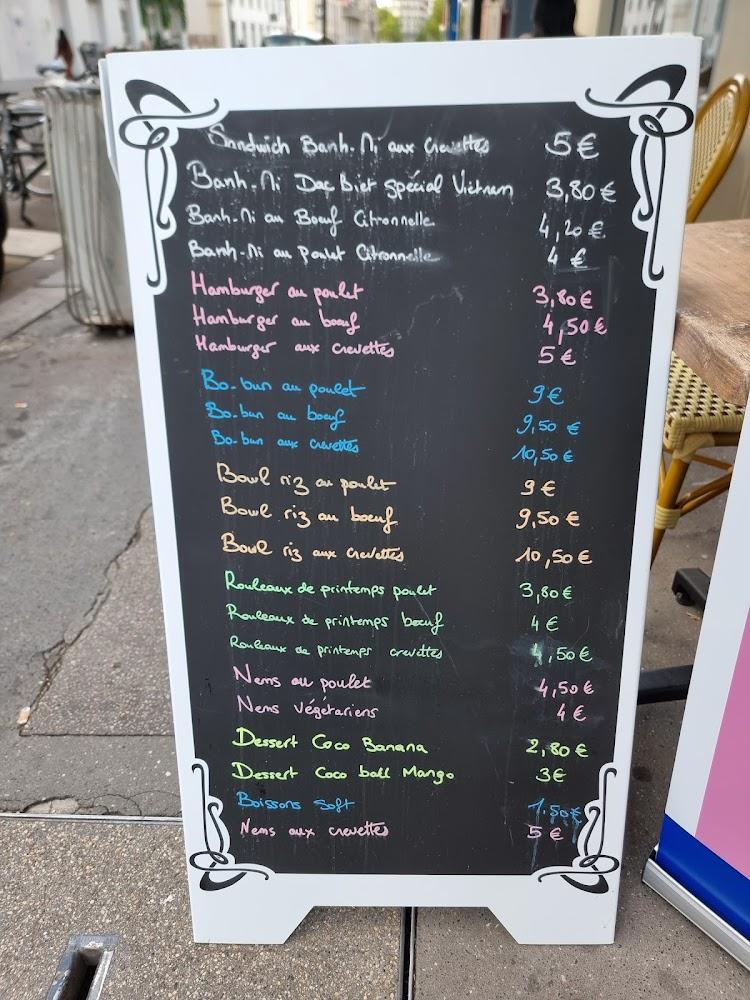 Sandwich Banh. Mi aux Crevettes 5€
Banh-Mi Dac biet spécial Vietnam 3,80€
Banh-Mi au Boeuf Citronnelle 4,20€
Banh-Mi au Poulet Citronnelle 4€
Hamburger au poulet 3,80€
Hamburger au boeuf 4,50€
Hamburger aux crevettes 5€
Bo-bun au poulet 9€
Bo-bun au boeuf 9,50€
Bo-bun aux crevettes 10,50€
Bowl riz au poulet 9€
Bowl riz au boeuf 9,50€
Bowl riz aux crevettes 10,50€
Rouleaux de printemps poulet 3,80€
Rouleaux de printemps boeuf 4€
Rouleaux de printemps crevettes 4,50€
Nems au poulet 4,50€
Nems végétariens 4€
Dessert Coco Banana 2,80€
Dessert Coco ball Mango 3€
Boissons Soft 1,50€
Nems aux crevettes 5€